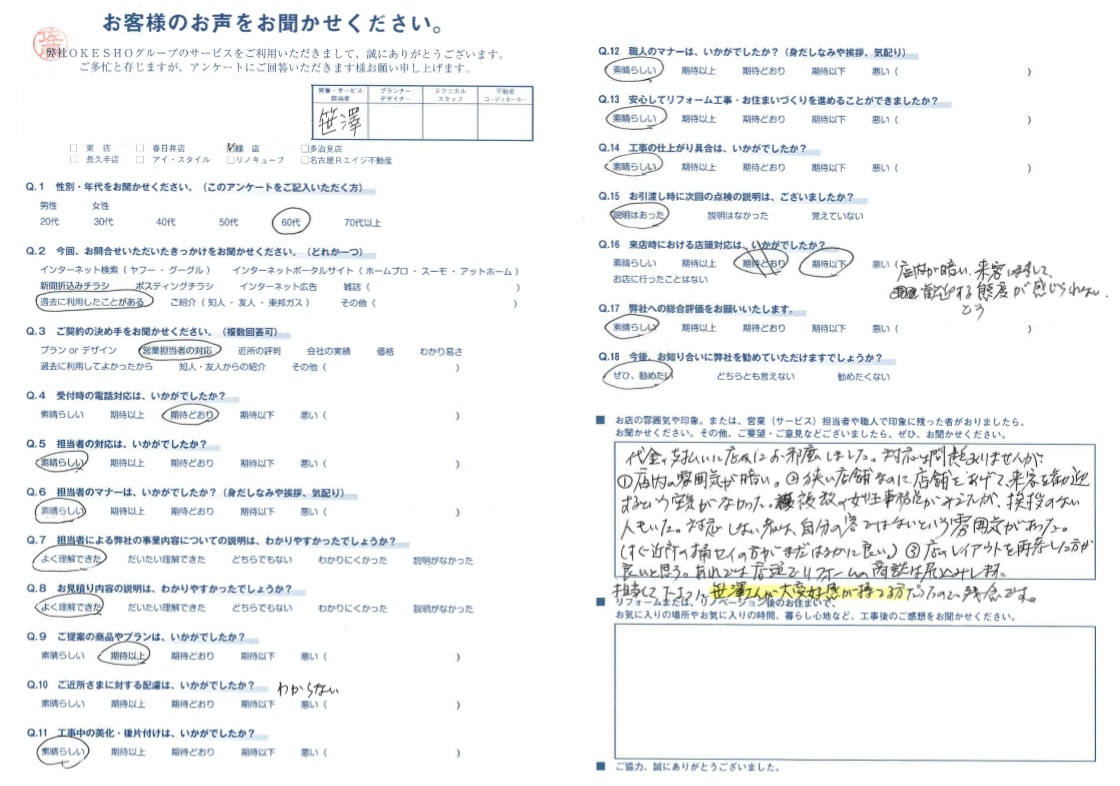 お客様のお声をお聞かせください。
弊社OKESHOグループのサービスをご利用いただきまして、誠にありがとうございます。
ご多忙と存じますが、アンケートにご回答いただきます様お願い申し上げます。
営業・サービス担当者 プランナーデザイナー テクニカルスタッフ 不動産コーディネーター
笹澤
□ 東 店 □ 春日井店 ☑緑 店 □多治見店
□ 長久手店 □ アイ・スタイル □リノキューブ □名古屋Rエイジ不動産
Q.1 性別・年代をお聞かせください。（このアンケートをご記入いただく方）
男性 女性
20代 30代 40代 50代 60代 70代以上
Q.2 今回、お問合せいただいたきっかけをお聞かせください。（どれか一つ）
インターネット検索（ ヤフー ・ グーグル ） インターネットポータルサイト（ ホームプロ ・ スーモ ・ アットホーム ）
新聞折込みチラシ ポスティングチラシ インターネット広告 雑誌（ ）
過去に利用したことがある ご紹介（ 知人 ・ 友人 ・ 東邦ガス ） その他（ ）
Q.3 ご契約の決手をお聞かせください。（複数回答可）
プラン or デザイン 営業担当者の対応 近所の評判 会社の実績 価格 わかり易さ
過去に利用してよかったから 知人・友人からの紹介 その他（ ）
Q.4 受付時の電話対応は、いかがでしたか？
素晴らしい 期待以上 期待どおり 期待以下 悪い（ ）
Q.5 担当者の対応は、いかがでしたか？
素晴らしい 期待以上 期待どおり 期待以下 悪い（ ）
Q.6 担当者のマナーは、いかがでしたか？（身だしなみや挨拶、気配り）
素晴らしい 期待以上 期待どおり 期待以下 悪い（ ）
Q.7 担当者による弊社の事業内容についての説明は、わかりやすかったでしょうか？
よく理解できた だいたい理解できた どちらでもない わかりにくかった 説明がなかった
Q.8 お見積り内容の説明は、わかりやすかったでしょうか？
よく理解できた だいたい理解できた どちらでもない わかりにくかった 説明がなかった
Q.9 ご提案の商品やプランは、いかがでしたか？
素晴らしい 期待以上 期待どおり 期待以下 悪い（ ）
Q.10 ご近所さまに対する配慮は、いかがでしたか？ わからない
素晴らしい 期待以上 期待どおり 期待以下 悪い（ ）
Q.11 工事中の美化・後片付けは、いかがでしたか？
素晴らしい 期待以上 期待どおり 期待以下 悪い（ ）
Q.12 職人のマナーは、いかがでしたか？（身だしなみや挨拶、気配り）
素晴らしい 期待以上 期待どおり 期待以下 悪い（ ）
Q.13 安心してリフォーム工事・お住まいづくりを進めることができましたか？
素晴らしい 期待以上 期待どおり 期待以下 悪い（ ）
Q.14 工事の仕上がり具合は、いかがでしたか？
素晴らしい 期待以上 期待どおり 期待以下 悪い（ ）
Q.15 お引渡し時に次回の点検の説明は、ございましたか？
説明はあった 説明はなかった 覚えていない
Q.16 来店時における店頭対応は、いかがでしたか？
素晴らしい 期待以上 期待どおり 期待以下 悪い（
店内が暗い、来客に対して、
お店に行ったことはない
歓迎する態度が感じられない
Q.17 弊社への総合評価をお願いいたします。
素晴らしい 期待以上 期待どおり 期待以下 悪い（ ）
Q.18 今後、お知り合いに弊社を勧めていただけますでしょうか？
ぜひ、勧めたい どちらとも言えない 勧めたくない
■ お店の雰囲気や印象。または、営業（サービス）担当者や職人で印象に残った者がおりましたら、
お聞かせください。その他、ご要望・ご意見などございましたら、ぜひ、お聞かせください。
代金の支払いに店舗にお邪魔しました。対応は問題ありませんが
①店内の雰囲気が暗い。②狭い店舗なのに店舗をあげて、来客を歓迎
するという空気がなかった。複数の女性事務員がみえたが、挨拶のない
人もいた。対応しない私は、自分の客ではないという雰囲気があった。
(すぐ近所の桶セイの方がまだはるかに良い。) ③店のレイアウトを再考した方が
良いと思う。あれでは店頭でリフォームの商談は尻込みします。
担当して下さった笹澤さんが大変好感が持てる方だったので残念です。
■ リフォームまたは、リノベーション後のお住まいで、
お気に入りの場所やお気に入りの時間、暮らし心地など、工事後のご感想をお聞かせください。
■ ご協力、誠にありがとうございました。